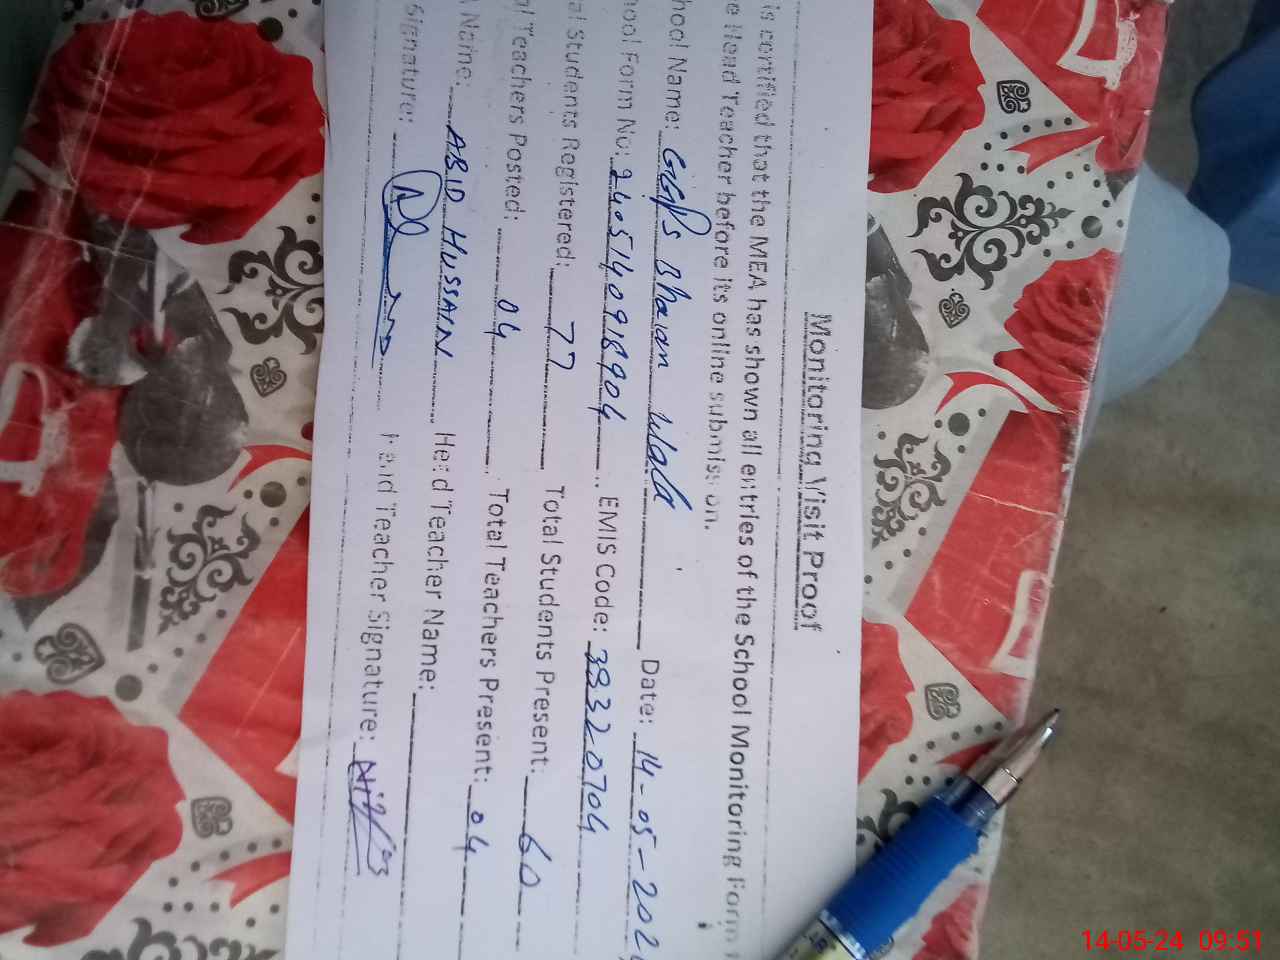 Monitoring Visit Proof
is certified that the MEA has shown all entries of the School Monitoring Form
e Head Teacher before its online submission.
hool Name: GGPS Bhaian Wala Date: 14-05-202
hool Form No: 2405140918904 EMIS Code: 38320704
al Students Registered: 77 Total Students Present: 60
al Teachers Posted: 04 Total Teachers Present: 04
Name: ABID HUSSAIN Head Teacher Name:
Signature: Head Teacher Signature:
14-05-24 09:51